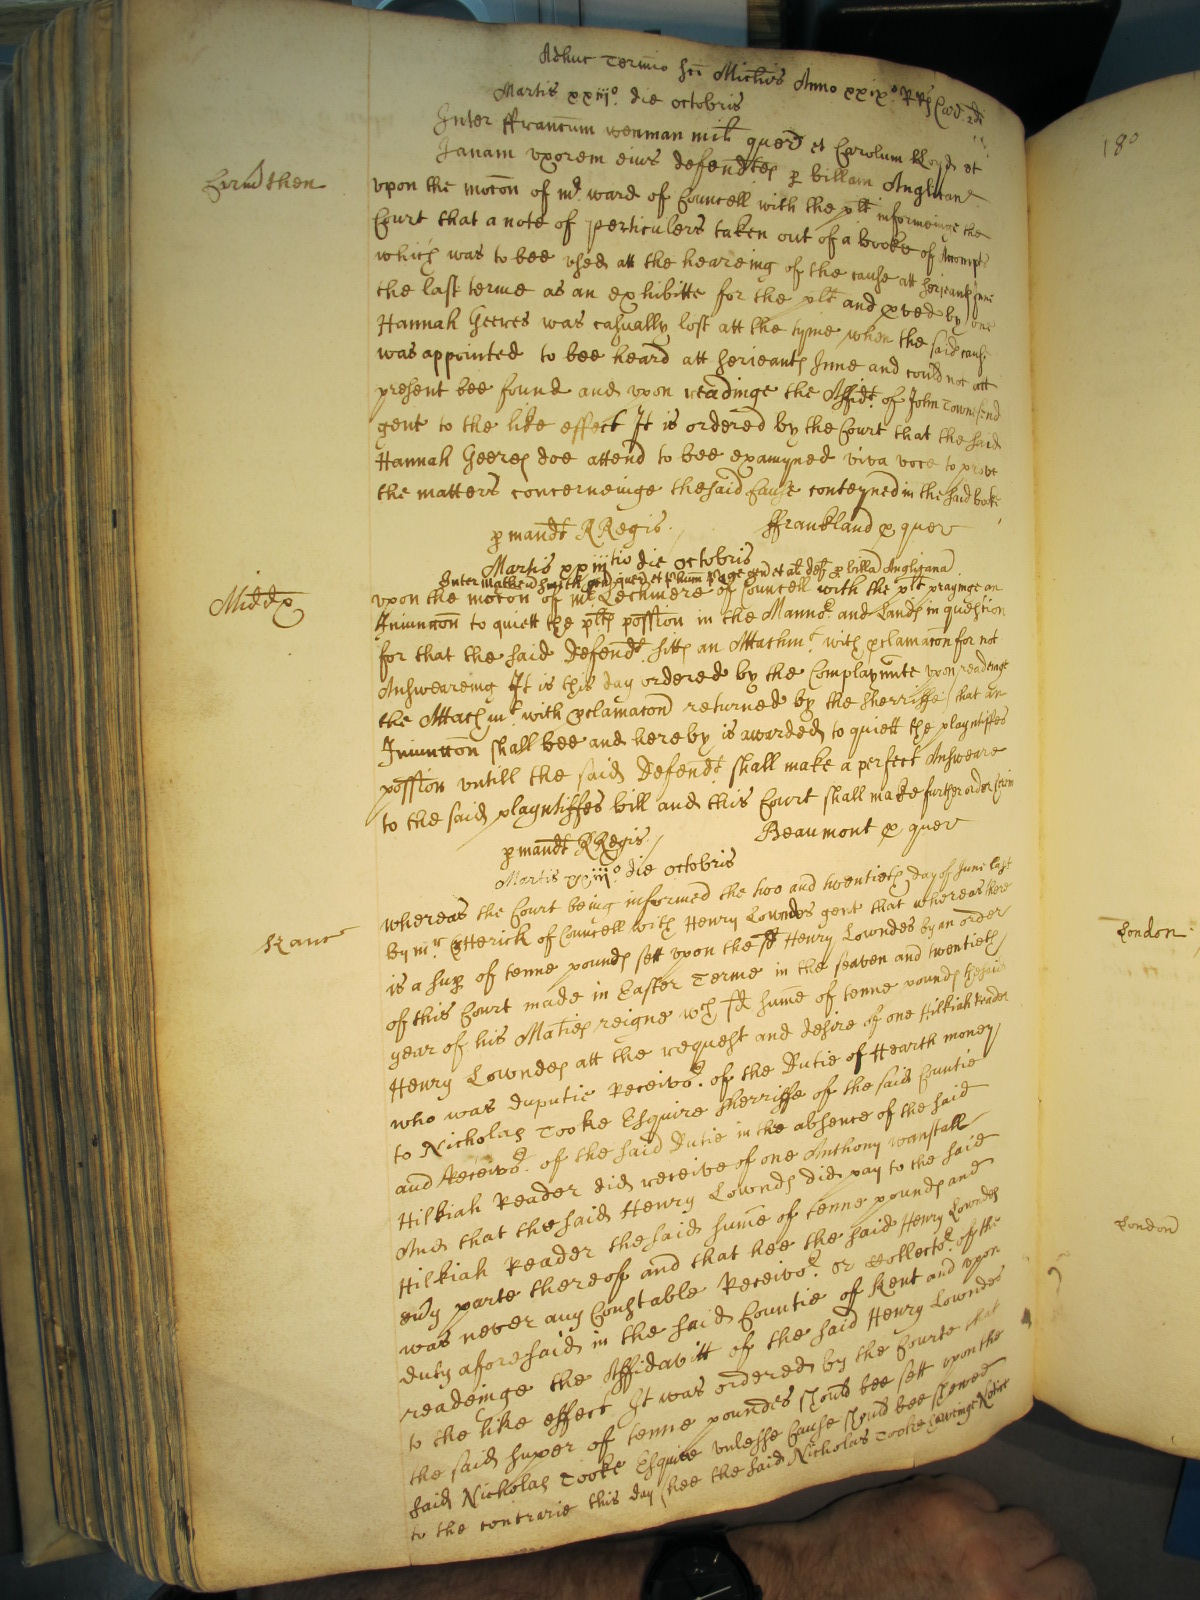 Adhuc Termīo Scī Michīs Anno xxixo RRs Card 2di
Martis xxiijo. die octobris
Inter ffrancum wenman milt quer et Carolum lloyd et
Carmthen
Janam vxorem eius defendtes p billam Anglican
vpon the mocon of mr. ward of Councell with the plt informeinge the
Court that a note of perticulers taken out of a booke of Accompts
which was to bee vsed att the heareing of the cause att Serieants Inne
the last terme as an exhibitte for the plt and pved by one
Hannah Geeres was casually lost att the tyme when the said cause
was appointed to bee heard att Serieants Inne and could not att
present bee found and vpon readinge the Affidt. of John Townsend
gent to the like effect It is ordered by the Court that the said
Hannah Geeres doe attend to bee examyned viva voce to prove
the matters concerneinge the said Cause conteyned in the said booke
p mandt RRegis. ffrankland p quer
Martis xxiijtio die octobris
Inter Mathew Smith gen quer et Page gen et al deft p billa Anglicana
Middx
vpon the mocon of mr Lechmere of Councell with the plt prayinge an
Iniunccon to quiett the plts possion in the Mannor. and Lands in question
for that the said Defendt. sitts an Attachmt. with pclamacon for not
Answeareing It is this day ordered by the Complaynnte vpon readeinge
the Attachmt with pclamacon returned by the Sherriffe that an
Iniunccon shall bee and hereby is awarded to quiett the playntiffes
possion vntill the said Defendt. shall make a perfect Answeare
to the said playntiffes bill and this Court shall make further order
p mandt RRegis. Beaumont p quer
Martis xxiijo. die octobris
Kanc
whereas the Court being informed the two and twentieth day of June last
by mr. Etterick of Councell with Henry Lowndes gent that whereas there
is a sup of tenne pounds sett vpon the sd Henry Lowndes by an order
of this Court made in Easter Terme in the seaven and twentieth
yeare of his Maties reigne wch sd sume of tenne pounds the said
Henry Lowndes att the request and desire of one Hilkiah Reader
who was Duputie Receivor. of the Dutie of Hearth money
to Nicholas Tooke Esquire Sherriffe of the said Countie
and Receivor. of the said Dutie in the absence of the said
Hilkiah Reader did receive of one Anthony wanstall
And that the said Henry Lownds did pay to the said
Hilkiah Reader the said sume of tenne pounds and
euy parte thereof and that hee the said Henry Lownds
was never any Constable Receivor. or Collector. of the
duty aforesaid in the said Countie of Kent and vpon
readeinge the Affidavitt of the said Henry Lowndes
to the like effect It was ordered by the Courte that
the said super of tenne poundes should bee sett vpon the
said Nicholas Tooke Esquire vnlesse Cause should bee shewed
to the contrarie this day (hee the said Nicholas Tooke haveinge Notice
180
London
London